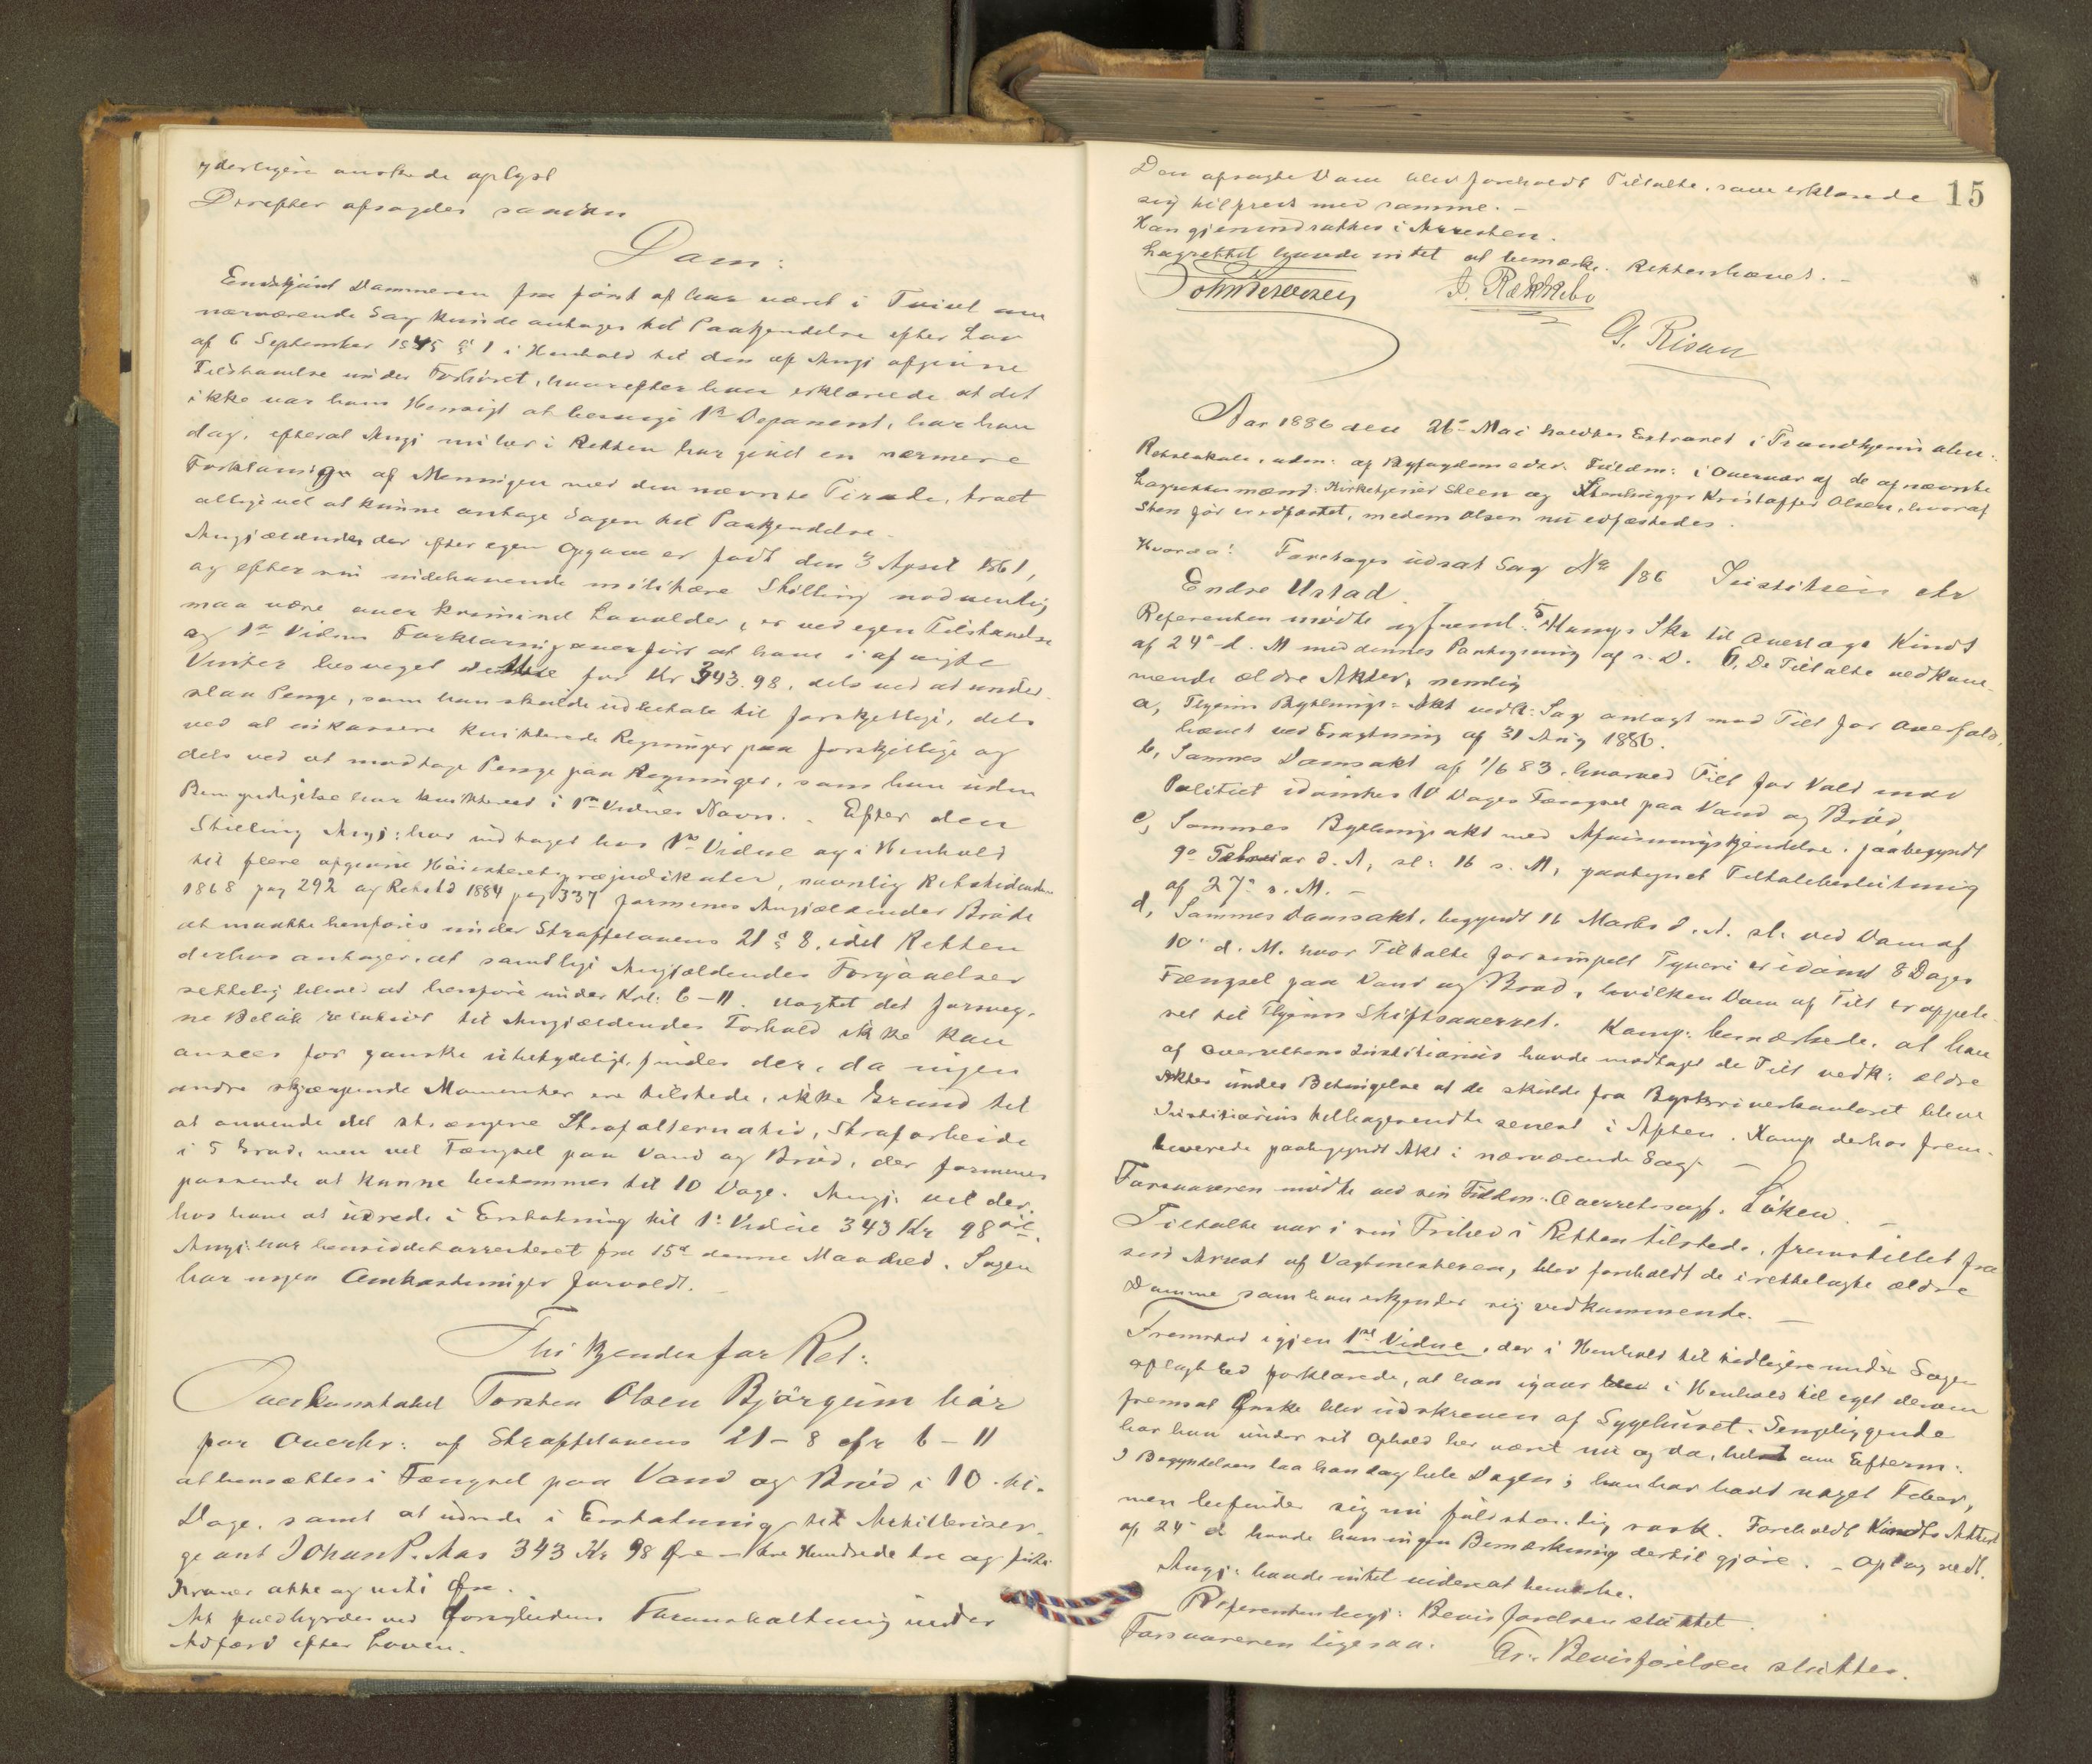 yderligere ønskede oplyst
Derefter afsagdes saadan
Dom:
Endskjønt Dommeren fra først af har været i Tvivl om
nærværende Sag kunde antages til Paakjendelse efter Lov
af 6 September 1845 § 1 i Henhold til den af Angj afgivne
Tilstaaelse under Forhøret, hvorefter han erklærede at det
ikke var hans Hensigt at besvige 1ste Deponent, har han
dog, efterat Angj nu her i Retten har givet en nærmere
Forklaring af Meningen med den nævnte Tirade, troet
alligevel at kunne antage Sagen til Paakjendelse.
Angjældende, der efter egen Opgave er født den 3 April 1861,
og efter sin indehavende militære Stilling nødvendig
maa være over kriminel Lavalder, er ved egen Tilstaaelse
og 1ste Vidnes Forklaring overført at have i afvigte
Vinter besveget dette for Kr 343.98, dels ved at under-
slaa Penge, som han skulde udbetale til forskjellige, dels
ved at inkassere kvitterede Regninger paa forskjellige og
dels ved at modtage Penge paa Regninger, som han uden
Bemyndigelse har kvitteret i 1ste Vidnes Navn. - Efter den
Stilling Angj: har indtaget hos 1ste Vidne og i Henhold
til flere afgivne Høiesteretspræjudikater, navnlig Retstidende
1868 pag 292 og Retstd 1884 pag 337 formenes Angjældendes Brøde
at maatte henføres under Straffelovens 21 § 8, idet Retten
derhos antager, at samtlige Angjældendes Forgaaelser
rettelig bliver at henføre under Krl: 6-11. Uagtet det forveg-
ne Beløb relativt til Angjældendes Forhold ikke kan
ansees for ganske ubetydeligt, findes der, da ingen
andre skjærpende Momenter ere tilstede, ikke Grund til
at anvende det strængere Strafalternativ, Strafarbeide
i 5 Grad, men vel Fængsel paa Vand og Brød, der formenes
passende at kunne bestemmes til 10 Dage. Angj: vil der-
hos have at udrede i Erstatning til 1ste Vidne 343 Kr 98 øre.
Angj: har henriddet arresteret fra 15de denne Maaned. Sagen
har ingen Omkostninger forvoldt.
Thi kjendes for Ret:
Overkonstabel Torsten Olsen Bjørgum bør
for Overtr: af Straffelovens 21-8 cfr 6-11
at hensættes i Fængsel paa Vand og Brød i 10 - ti -
Dage, samt at udrede i Erstatning til Artilleriser-
geant Johan P. Aas 343 Kr 98 Øre - tre Hundrede tre og firti
Kroner otte og niti Øre.
At fuldbyrdes ved Foranstaltning under
Adfærd efter Loven.
15
Den afsagte Dom blev foreholdt Tiltalte, som erklærede
sig tilfreds med samme. -
Han gjenindsattes i Arresten.
Lagrettet havde intet at bemærke. Retten hævet. -
J. Rekkebo
G. Risan
Aar 1886 den 26de Mai holdtes Extraret i Trondhjems alm:
Retslokale, adm: af Byfogdens edsv. Fuldm: i Overvær af de opnævnte
Lagrettesmænd: Kirketjener Steen og Stenhugger Kristoffer Olsen, hvoraf
Sten før er edfæstet, medens Olsen nu edfæstedes.
Hvorda: Foretoges udsat Sag No /86 Justitsen ctr
Endre Ustad.
Referenten mødte og freml. 5, Kamps Skr til Overlæge Kindt
af 24de d. M med dennes Paategning af s. D. 6, De Tiltalte vedkom-
mende ældre Akter, nemlig
a, Thjems Bythings-Akt vedk: Sag anlagt mod Tilt for Overfald,
hævet ved Eragtning af 31 Aug 1880.
b, Sammes Domsakt af 1/6 83, hvorved Tilt for Vold mod
Politiet idømtes 10 Dages Fængsel paa Vand og Brød,
c, Sammes Bythingsakt med Afvisningskjendelse, paabegyndt
9de Februar d. A, sl: 16 s. M, paategnet Tiltalebeslutning
af 27de s. M. -
d, Sammes Domsakt, begyndt 16 Marts d. A. sl. ved Dom af
10de d. M. hvor Tiltalte for simpelt Tyveri er idømt 8 Dages
Fængsel paa Vand og Brød, hvilken Dom af Tilt er appele-
ret til Thjems Stiftsoverret. Kamp: bemærkede, at han
af Overrettens Justitiarius havde modtaget de Tilt vedk: ældre
Akter under Betingelse at de skulde fra Byskriverkontoret blive
Justitiarius tilbagesendte senest i Aften. Kamp derhos frem-
leverede paabegyndt Akt i nærværende Sag. -
Forsvareren mødte ved sin Fuldm: Overretssagf. Løken. -
Tiltalte var i sin Frihed i Retten tilstede, fremstillet fra
sin Arrest af Vagtmesteren, blev foreholdt de i rettelagte ældre
Domme som han erkjender sig vedkommende. -
Fremstod igjen 1ste Vidne, der i Henhold til tidligere under Sagen
aflagt Ed forklarede, at han igaar blev i Henhold til eget derom
fremsat Ønske blev udskreven af Sygehuset. Sengeliggende
har han under sit Ophold her været nu og da, helst om Efterm:
I Begyndelsen laa han dog hele Dagen; han har havt noget Feber,
men befinder sig nu fuldstændig rask. Foreholdt Kindts Attest
af 24de d havde han ingen Bemærkning dertil gjøre. - Opl og vedt.
Angj: havde intet videre at bemærke.
Referenten begj: Bevisførelsen sluttet.
Forsvareren ligesaa. Er: Bevisførelsen sluttes.